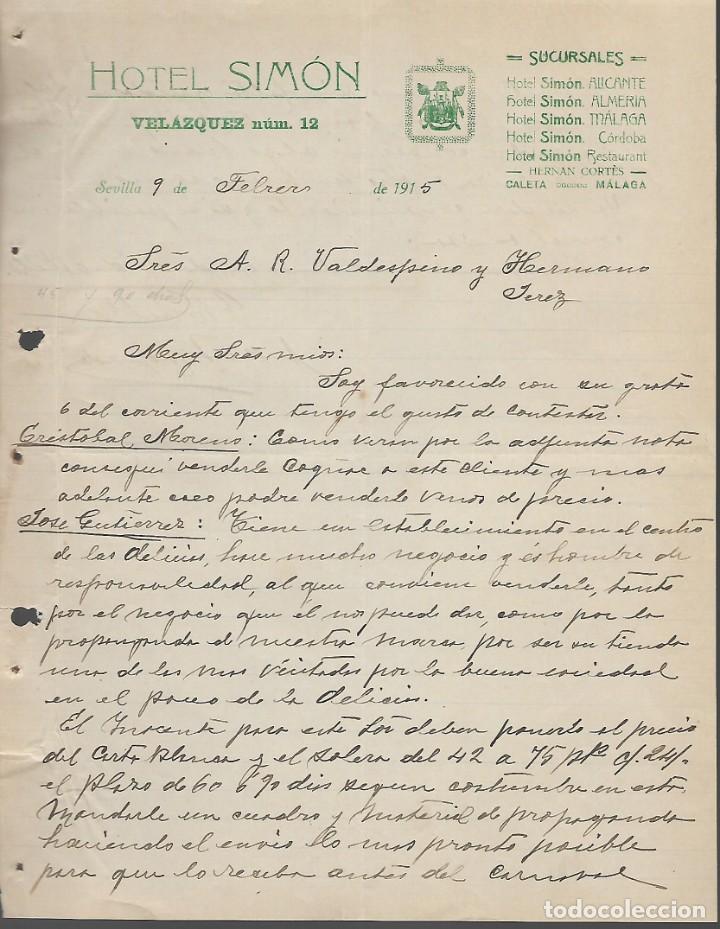 HOTEL SIMÓN
VELÁZQUEZ núm. 12
= SUCURSALES =
Hotel Simón. ALICANTE
Hotel Simón. ALMERIA
Hotel Simón. MÁLAGA
Hotel Simón. Córdoba
Hotel Simón Restaurant
— HERNAN CORTÈS —
CALETA MÁLAGA
Sevilla 9 de Febrero de 1915
Sres A. R. Valdespino y Hermano
Jerez
45 y 90 dias
Muy Sres mios:
Soy favorecido con su grata
6 del corriente que tengo el gusto de contestar.
Cristobal Moreno: Como veran por la adjunta nota
consegui venderle Cognac a este cliente y mas
adelante creo podre venderle vinos de precio.
Jose Gutierrez: Tiene un establecimiento en el centro
de las delicias, hace mucho negocio y es hombre de
responsavilidad, al que conviene venderle, tanto
por el negocio que el nos puede dar, como por la
propaganda de nuestra marca por ser su tienda
una de las mas visitadas por la buena sociedad
en el paseo de la delicias.
El Inocente para este Sor deben ponerlo al precio
del Carta Blanca y el solera del 42 a 75 pts c/. 24/-
el plazo de 60 ó 90 dias segun costumbre en esta.
Mandarle un cuadro y material de propaganda
haciendo el envio lo mas pronto posible
para que lo reciba antes del carnaval
todocoleccion
todocoleccion.net